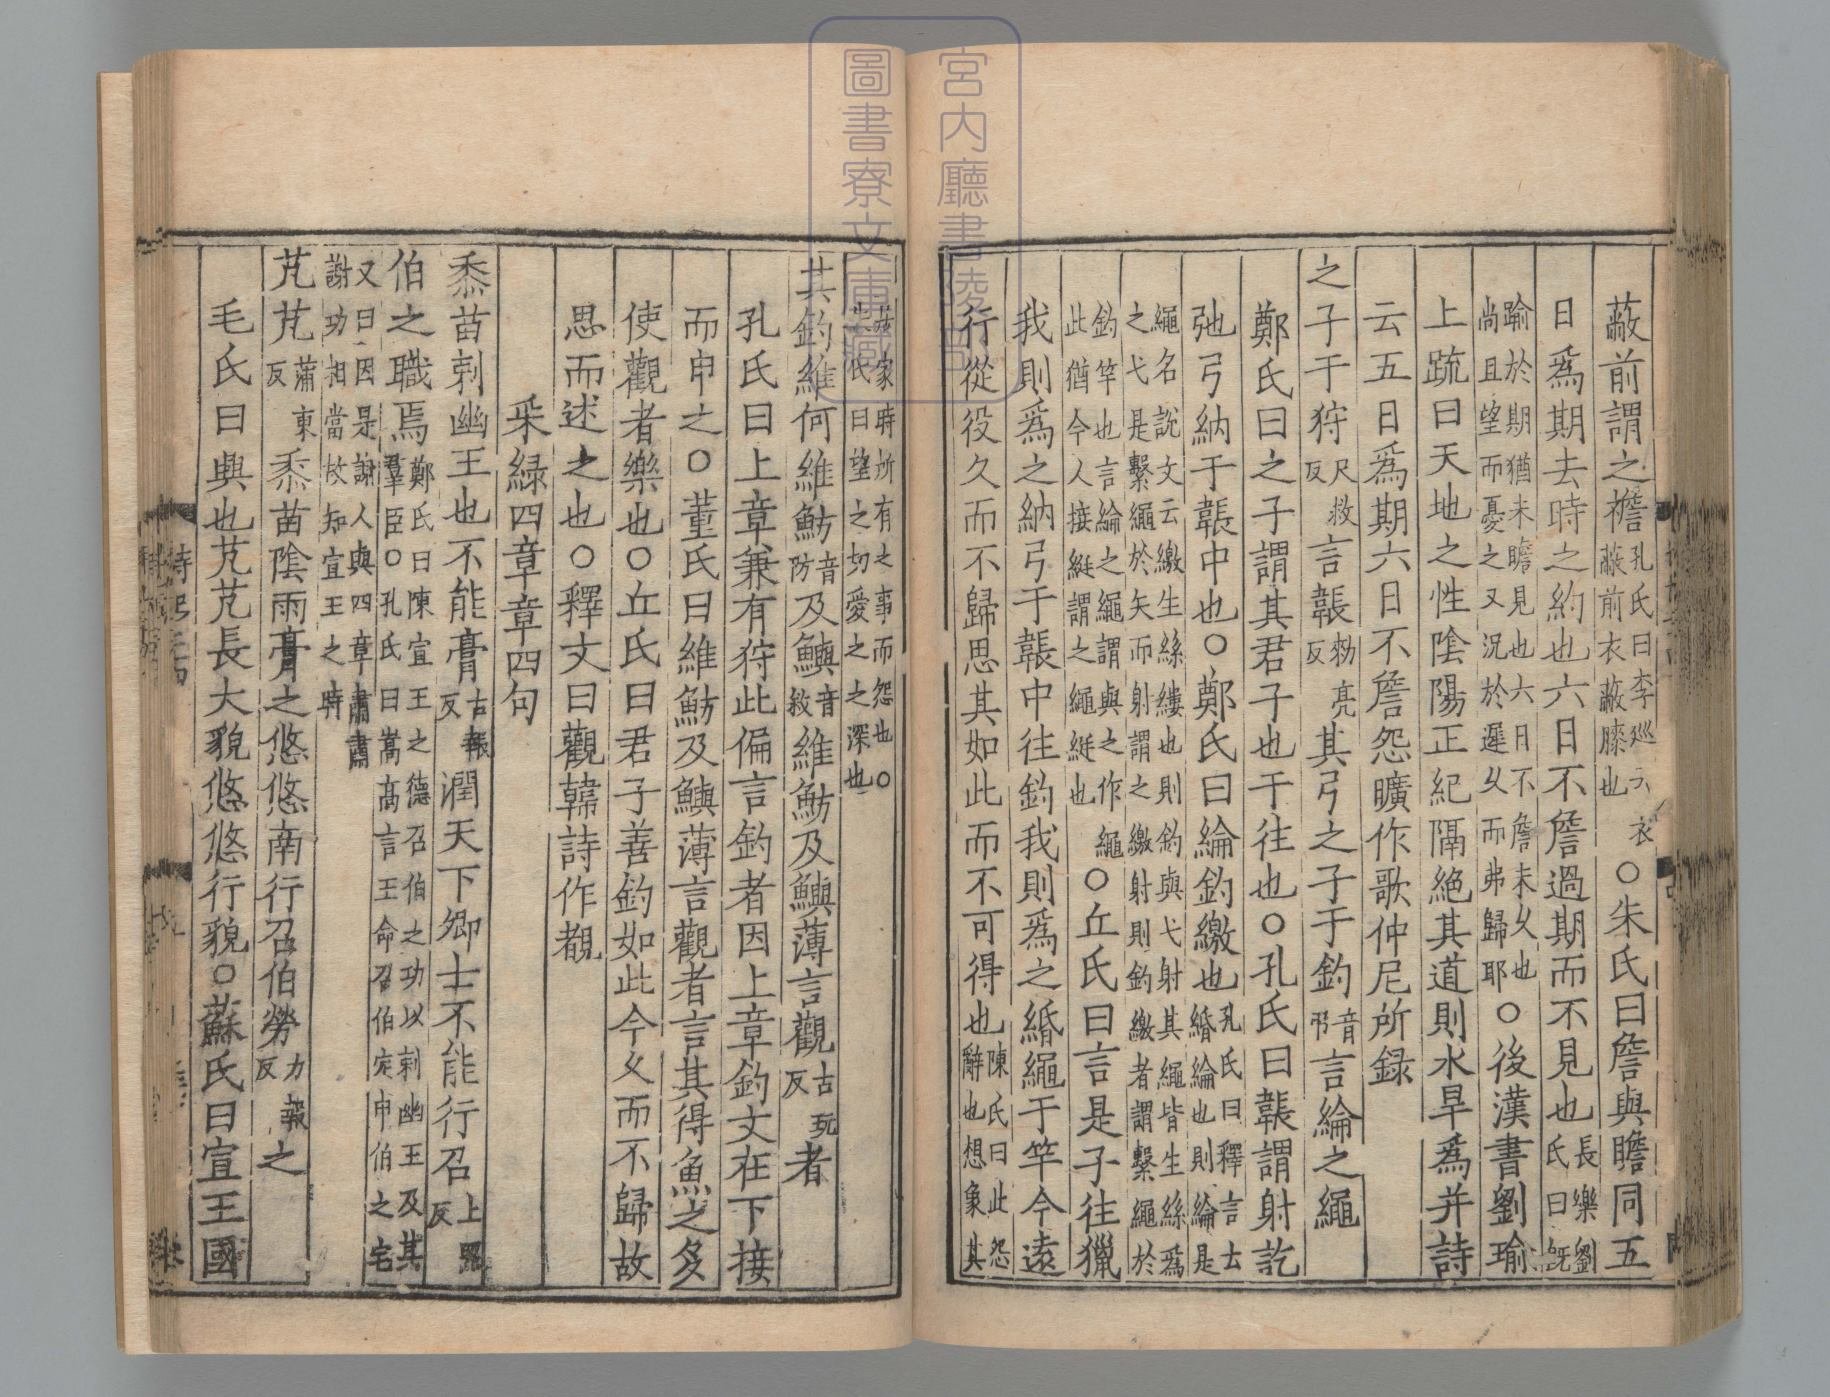 蔽前謂之襜孔氏曰李廵云衣蔽前衣蔽膝也○朱氏曰詹與瞻同五
日爲期去時之約也六日不詹過期而不見也長樂劉氏曰旣
踰於期猶未瞻見也六日不詹未夊也尚且望而憂之又况於遲夊而弗歸耶○後漢書劉瑜
上疏曰天地之性陰陽正紀隔絶其道則水旱爲并詩
云五日爲期六日不詹怨曠作歌仲尼所録
之子于狩尺救反言韔勑亮反其弓之子于釣音弔言綸之繩
鄭氏曰之子謂其君子也于往也○孔氏曰韔謂射訖
弛弓納于韔中也○鄭氏曰綸釣繳也孔氏曰釋言云緡綸也則綸是
繩名說文云繳生絲縷也則釣與弋射其繩皆生絲爲之弋是繫繩於矢而射謂之繳射則釣繳者謂繫繩於
釣竿也言綸之繩謂與之作繩此猶今人接綎謂之繩綎也○丘氏曰言是子往獵
我則爲之納弓于韔中往釣我則爲之緡繩于竿今遠
行從役久而不歸思其如此而不可得也陳氏曰此怨辭也想象其
室家時所有之事而怨也○范氏曰望之切愛之之深也
其釣維何維魴音防及鱮音敘維魴及鱮薄言觀古玩反者
孔氏曰上章兼有狩此偏言釣者因上章釣文在下接
而申之○董氏曰維魴及鱮薄言觀者言其得魚之多
使觀者樂也○丘氏曰君子善釣如此今夊而不歸故
思而述之也○釋文曰觀韓詩作覩
采緑四章章四句
黍苗刺幽王也不能膏古報反潤天下卿士不能行召上照反
伯之職焉鄭氏曰陳宣王之德召伯之功以刺幽王及其羣臣○孔氏曰嵩高言王命召伯定申伯之宅
又曰因是謝人與四章肅肅謝功相當故知宣王之時
芃芃蒲東反黍苗陰雨膏之悠悠南行召伯勞力報反之
毛氏曰興也芃芃長大貌悠悠行貌○蘇氏曰宣王國
宮内廳書陵部
圖書寮文庫藏